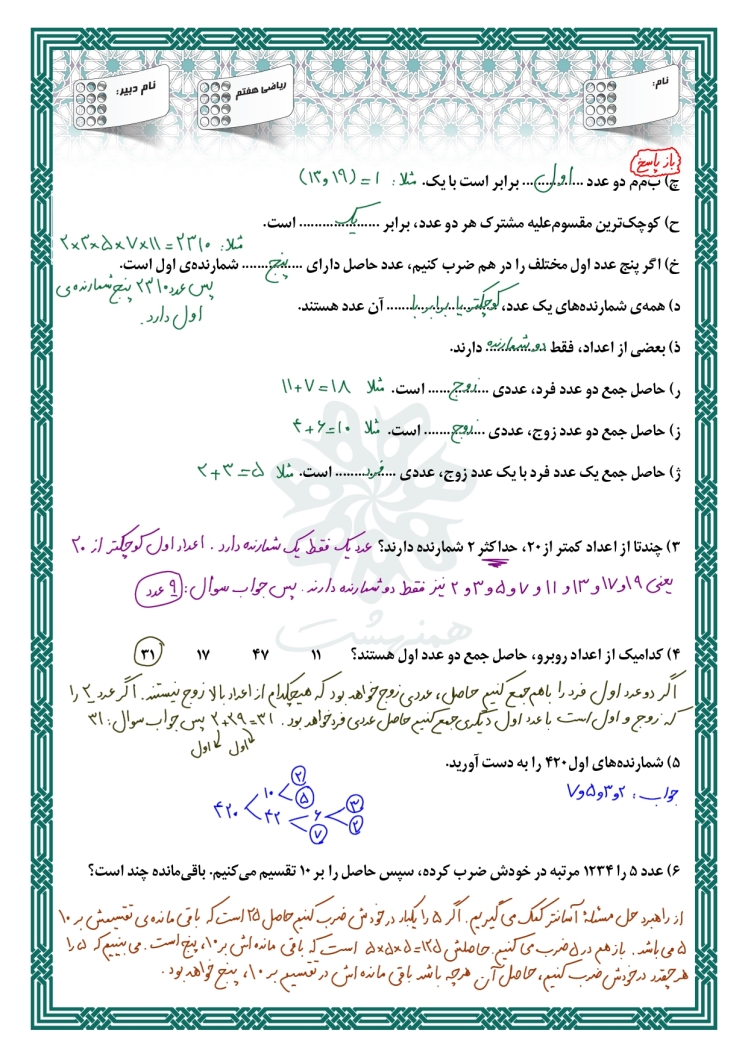 نام:
ریاضی هفتم
نام دبیر:
باز پاسخ
چ) ب‌م‌م دو عدد ....اول.... برابر است با یک. مثلا: ۱ = (۱۳و۱۹)
ح) کوچک‌ترین مقسوم‌علیه مشترک هر دو عدد، برابر ....یک.... است.
مثلا: ۲×۳×۵×۷×۱۱=۲۳۱۰
خ) اگر پنج عدد اول مختلف را در هم ضرب کنیم، عدد حاصل دارای ....پنج.... شمارنده‌ی اول است.
پس عدد ۲۳۱۰ پنج شمارنده‌ی
اول دارد.
د) همه‌ی شمارنده‌های یک عدد، کوچکتر یا برابر با آن عدد هستند.
ذ) بعضی از اعداد، فقط دو شمارنده دارند.
ر) حاصل جمع دو عدد فرد، عددی ....زوج.... است. مثلا ۱۱+۷=۱۸
ز) حاصل جمع دو عدد زوج، عددی ....زوج.... است. مثلا ۴+۶=۱۰
ژ) حاصل جمع یک عدد فرد با یک عدد زوج، عددی ....فرد.... است. مثلا ۲+۳=۵
۳) چندتا از اعداد کمتر از ۲۰، حداکثر ۲ شمارنده دارند؟ عدد یک فقط یک شمارنده دارد. اعداد اول کوچکتر از ۲۰
یعنی ۱۹و۱۷و۱۳و۱۱و۷و۵و۳و۲ نیز فقط دو شمارنده دارند. پس جواب سوال: ۹ عدد
۴) کدامیک از اعداد روبرو، حاصل جمع دو عدد اول هستند؟ ۱۱ ۴۷ ۱۷ ۳۱
اگر دو عدد اول فرد را باهم جمع کنیم حاصل، عددی زوج خواهد بود که هیچکدام از اعداد بالا زوج نیستند. اگر عدد ۲ را
که زوج و اول است با عدد اول دیگری جمع کنیم حاصل عددی فرد خواهد بود. ۲+۲۹=۳۱ پس جواب سوال: ۳۱
اول اول
۵) شمارنده‌های اول ۴۲۰ را به دست آورید.
جواب: ۲و۳و۵و۷
۴۲۰ ۱۰ ۲ ۵ ۴۲ ۶ ۳ ۲ ۷
۶) عدد ۵ را ۱۲۳۴ مرتبه در خودش ضرب کرده، سپس حاصل را بر ۱۰ تقسیم می‌کنیم. باقی‌مانده چند است؟
از راهبرد حل مسئله آسانتر کمک می گیریم. اگر ۵ را یکبار در خودش ضرب کنیم حاصل ۲۵ است که باقی مانده‌ی تقسیمش بر ۱۰
۵ می باشد. باز هم در ۵ ضرب می کنیم. حاصلش ۱۲۵=۵×۵×۵ است که باقی مانده اش بر ۱۰، پنج است. می بینیم که ۵ را
هر چقدر در خودش ضرب کنیم، حاصل آن هرچه باشد باقی مانده اش در تقسیم بر ۱۰، پنج خواهد بود.
همنهشت